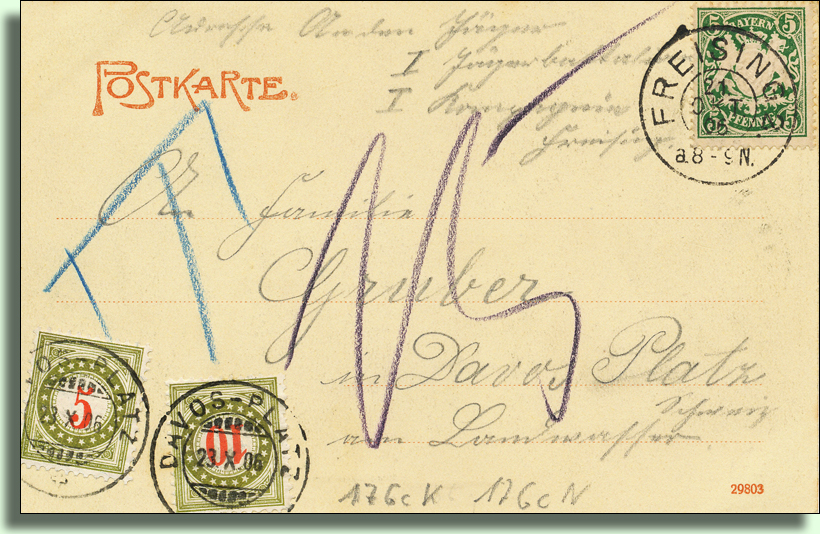 Adresse An den Jäger
I Jägerbataillon
I Kompagnie
Freising.
POSTKARTE.
5 BAYERN 5
5 PFENNIG 5
FREISING
21
OKT
06
a. 8-9 N.
An Familie
Gruber
in Davos Platz
Schweiz
am Landwasser
T
15
5
DAVOS-PLATZ
23 X 06
10
DAVOS-PLATZ
23 X 06
176cK 176cN
29803